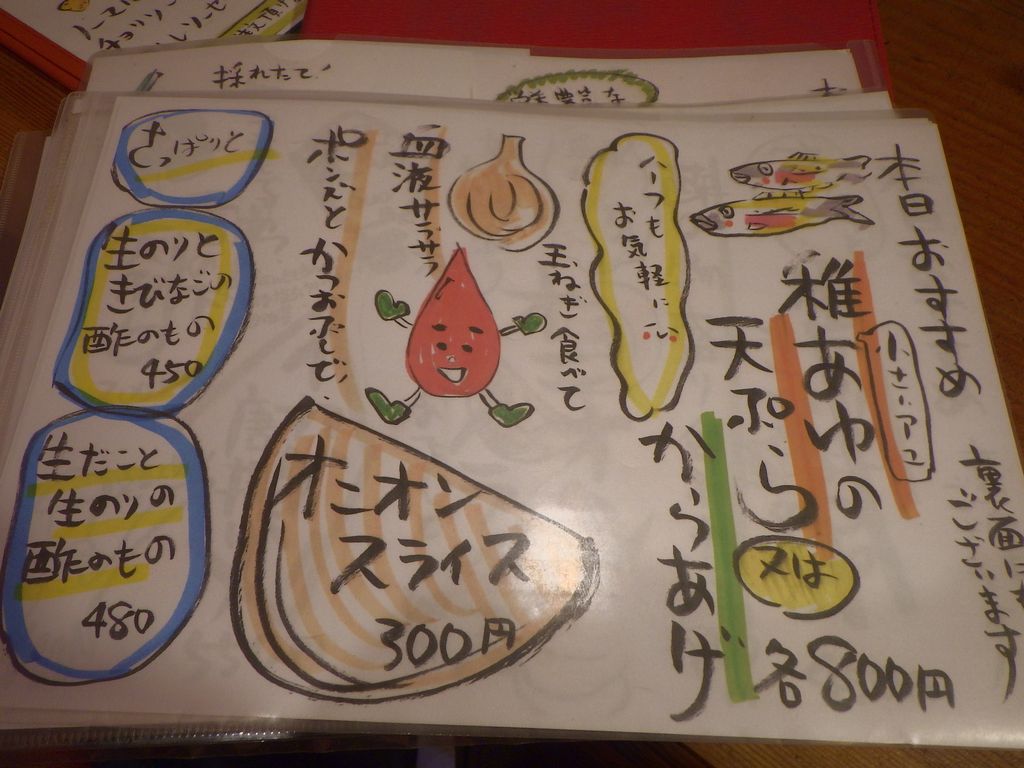 本日おすすめ
稚あゆの
小さいアユ
天ぷら
又は
からあげ
各800円
裏面にも
ございます
ハーフも
お気軽に
玉ねぎ食べて
血液サラサラ
ポンズと かつおぶしで、
オニオン
スライス
300円
さっぱりと
生のりと
きびなごの
酢のもの
450
生だこと
生のりの
酢のもの
480
採れたて!